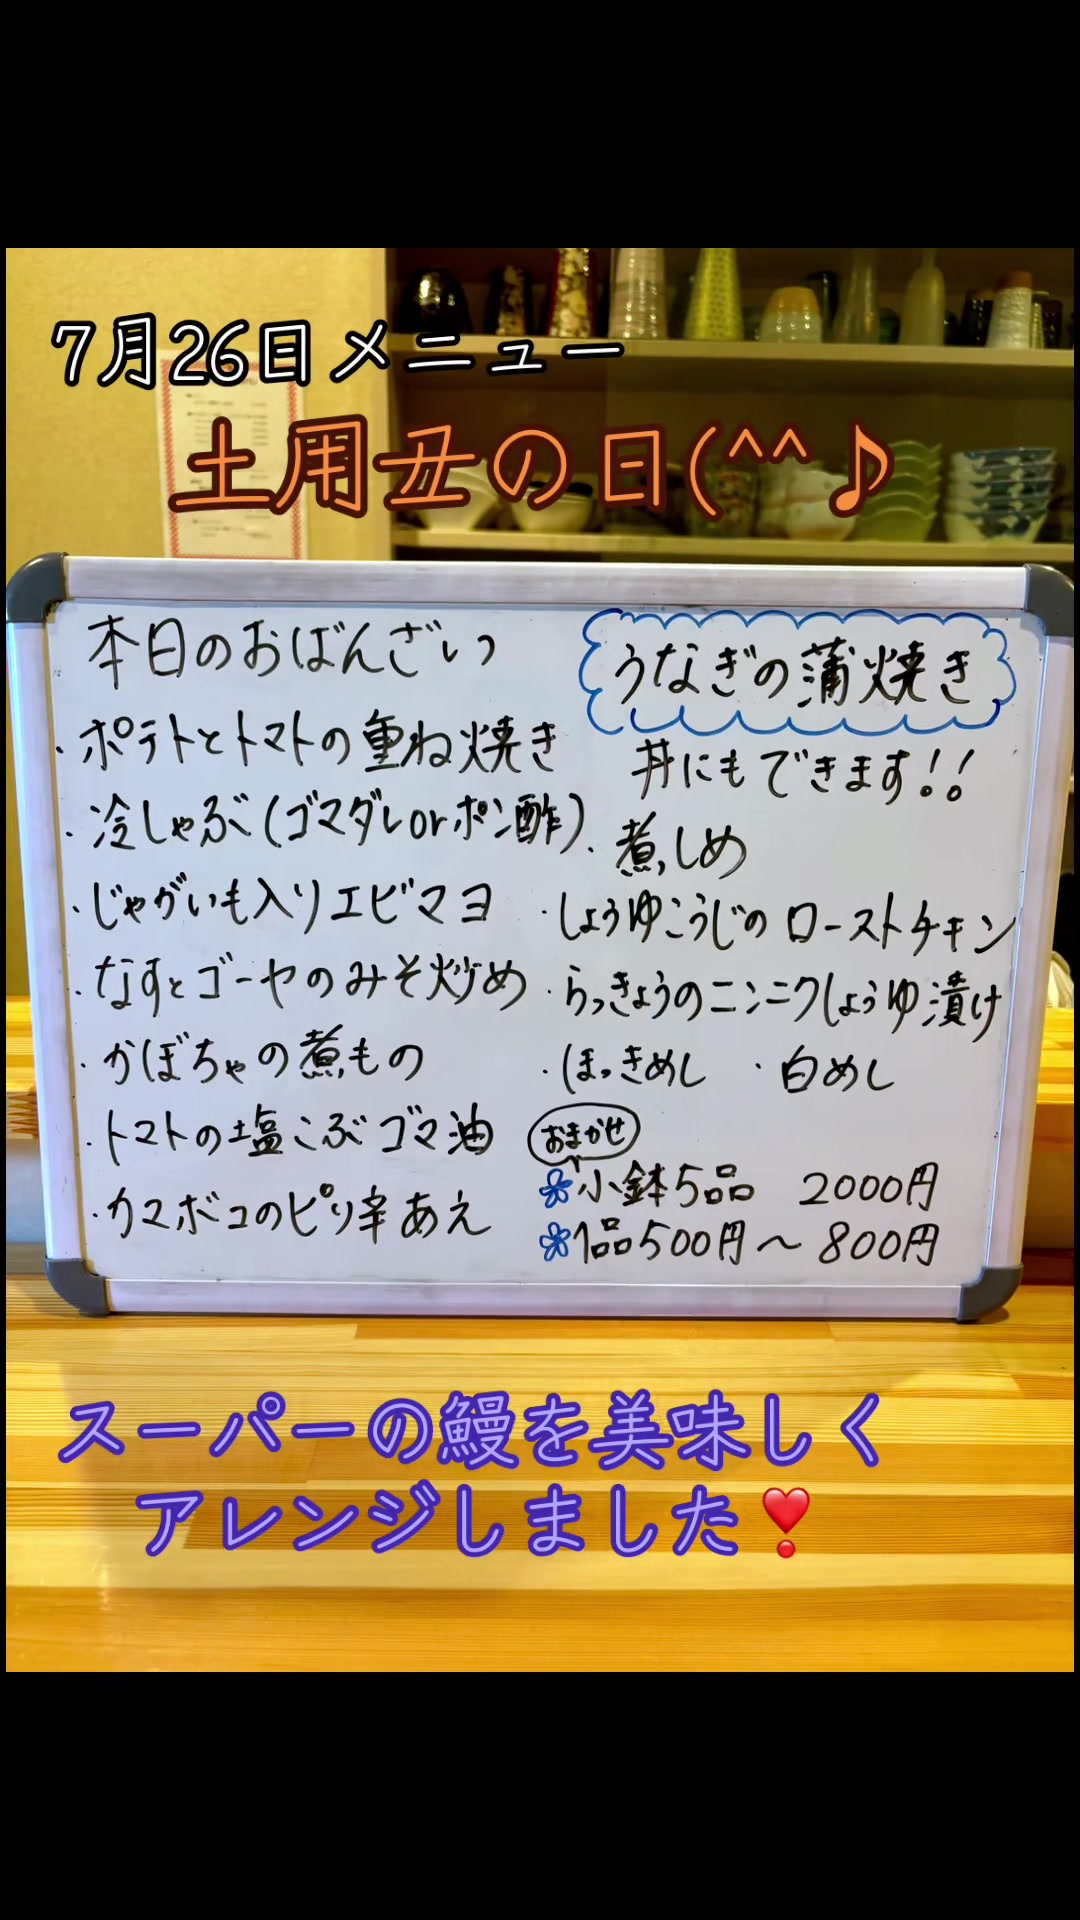 7月26日メニュー
土用丑の日(^^♪
本日のおばんざい
・ポテトとトマトの重ね焼き
・冷しゃぶ(ゴマダレorポン酢)
・じゃがいも入りエビマヨ
・なすとゴーヤのみそ炒め
・かぼちゃの煮もの
・トマトの塩こぶゴマ油
・カマボコのピリ辛あえ
うなぎの蒲焼き
丼にもできます!!
・煮しめ
・しょうゆこうじのローストチキン
・らっきょうのニンニクしょうゆ漬け
・ほっきめし ・白めし
おまかせ
小鉢5品 2000円
1品500円〜800円
スーパーの鰻を美味しく
アレンジしました❣️